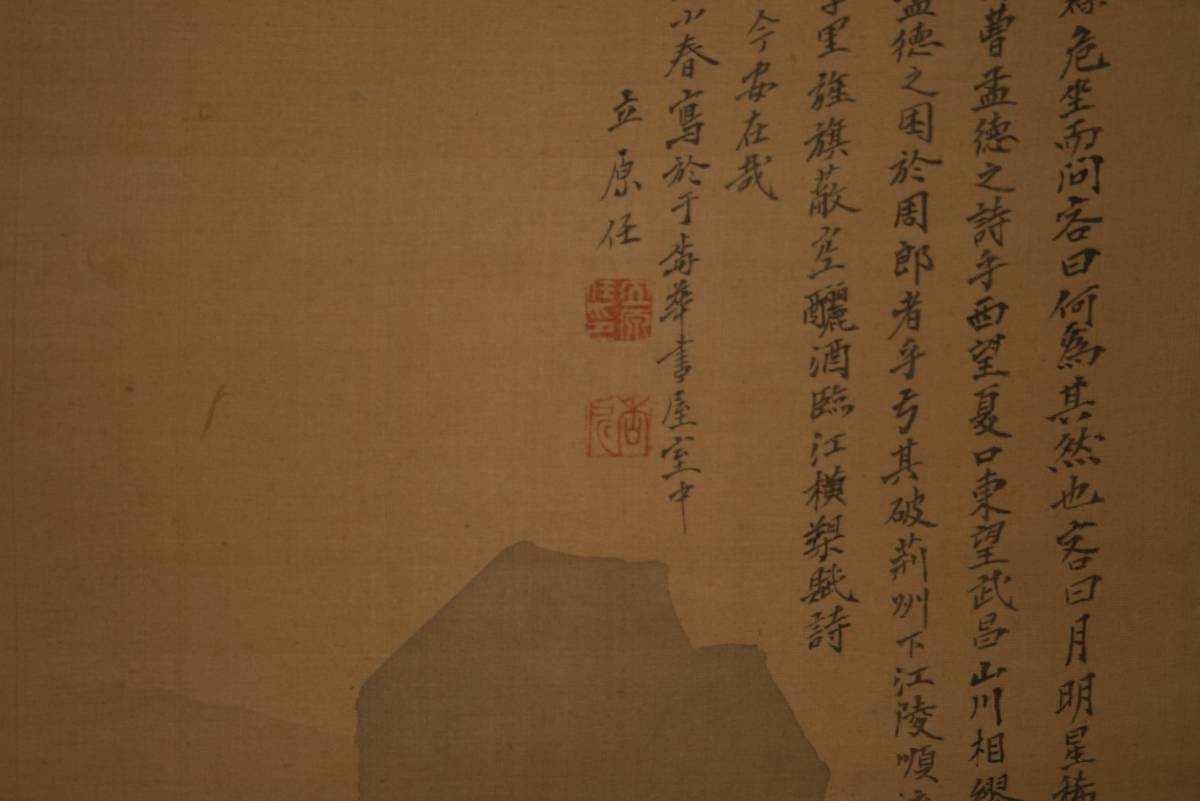 危坐而问客曰何為其然也客曰月明星稀
曹孟德之詩乎西望夏口東望武昌山川相繆
孟德之困於周郎者乎方其破荊州下江陵順流
里旌旗蔽空釃酒臨江橫槊賦詩
今安在哉
小春寫於于梅華書屋室中
立原任
立原任印
杏所